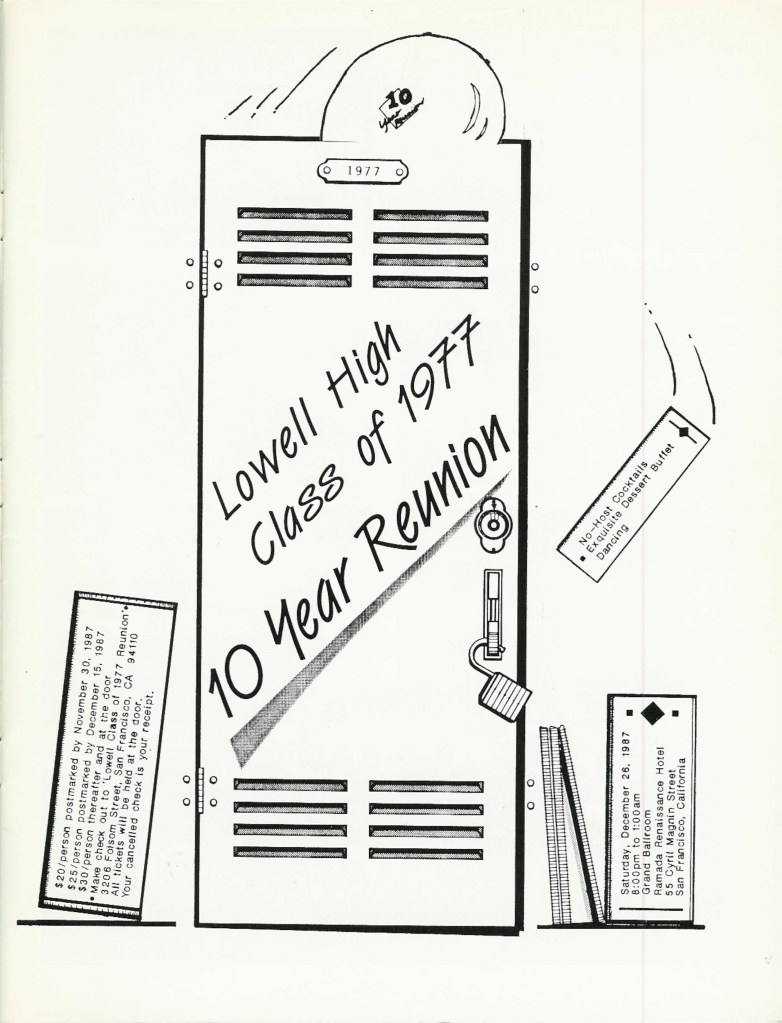 10
Year
Reunion
1977
Lowell High
Class of 1977
10 Year Reunion
▪ No-Host Cocktails
▪ Exquisite Dessert Buffet
Dancing
$20/person postmarked by November 30, 1987
$25/person postmarked by December 15, 1987
$30/person thereafter and at the door
• Make check out to 'Lowell Class of 1977 Reunion' •
3206 Folsom Street, San Francisco, CA 94110
All tickets will be held at the door.
Your cancelled check is your receipt.
Saturday, December 26, 1987
8:00pm to 1:00am
Grand Ballroom
Ramada Renaissance Hotel
55 Cyril Magnin Street
San Francisco, California